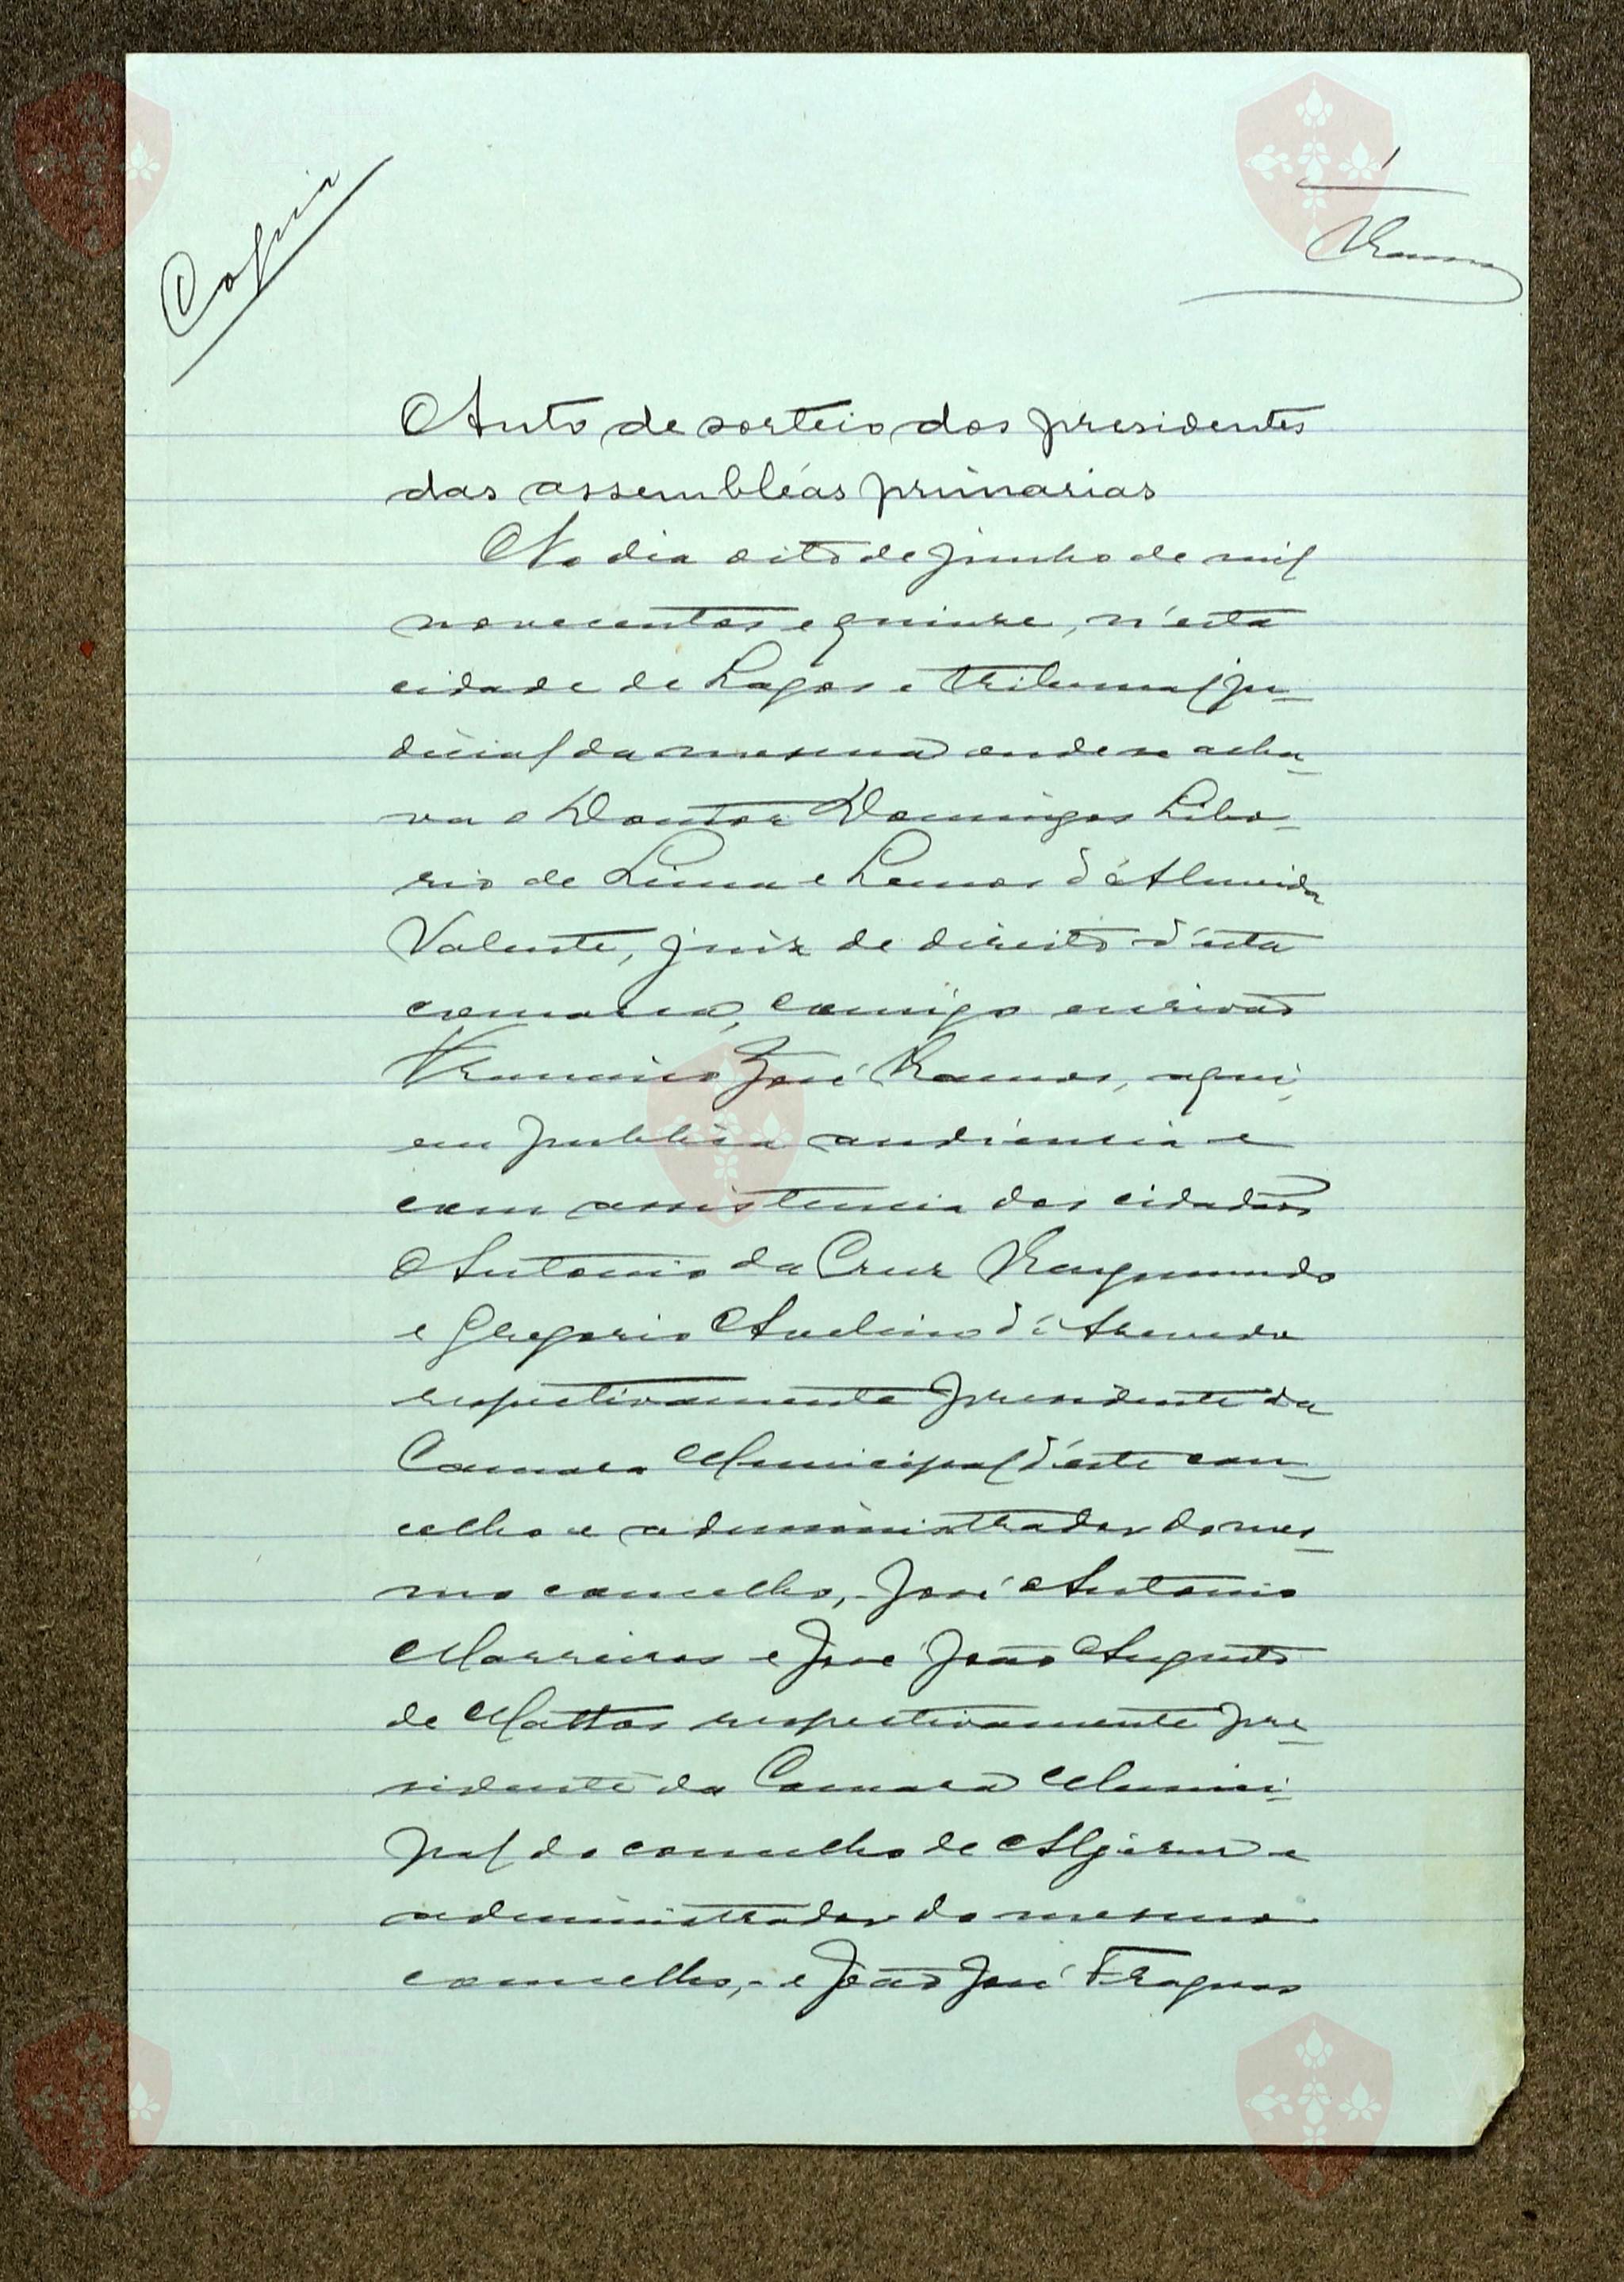 Copia
1
Ramos
Auto de sorteio dos presidentes
das assembléas primarias
No dia oito de junho de mil
novecentos e quinze, n'esta
cidade de Lagos e tribunal ju-
dicial da mesma onde se acha-
va o Doutor Domingos Libo-
rio de Lima e Lemos d'Almeida
Valente, juiz de direito d'esta
comarca, comigo escrivão
Francisco José Ramos, aqui,
em publica audiencia e
com assistencia dos cidadãos
Antonio da Cruz Raymundo
e Gregorio Avelino d'Azevedo
respectivamente presidente da
Camara Municipal d'este con-
celho e administrador do mes-
mo concelho, - José Antonio
Marreiros e José João Augusto
de Mattos respectivamente pre-
sidente da Camara Munici-
pal do concelho de Aljezur e
administrador do mesmo
concelho, - e João José Fragoso